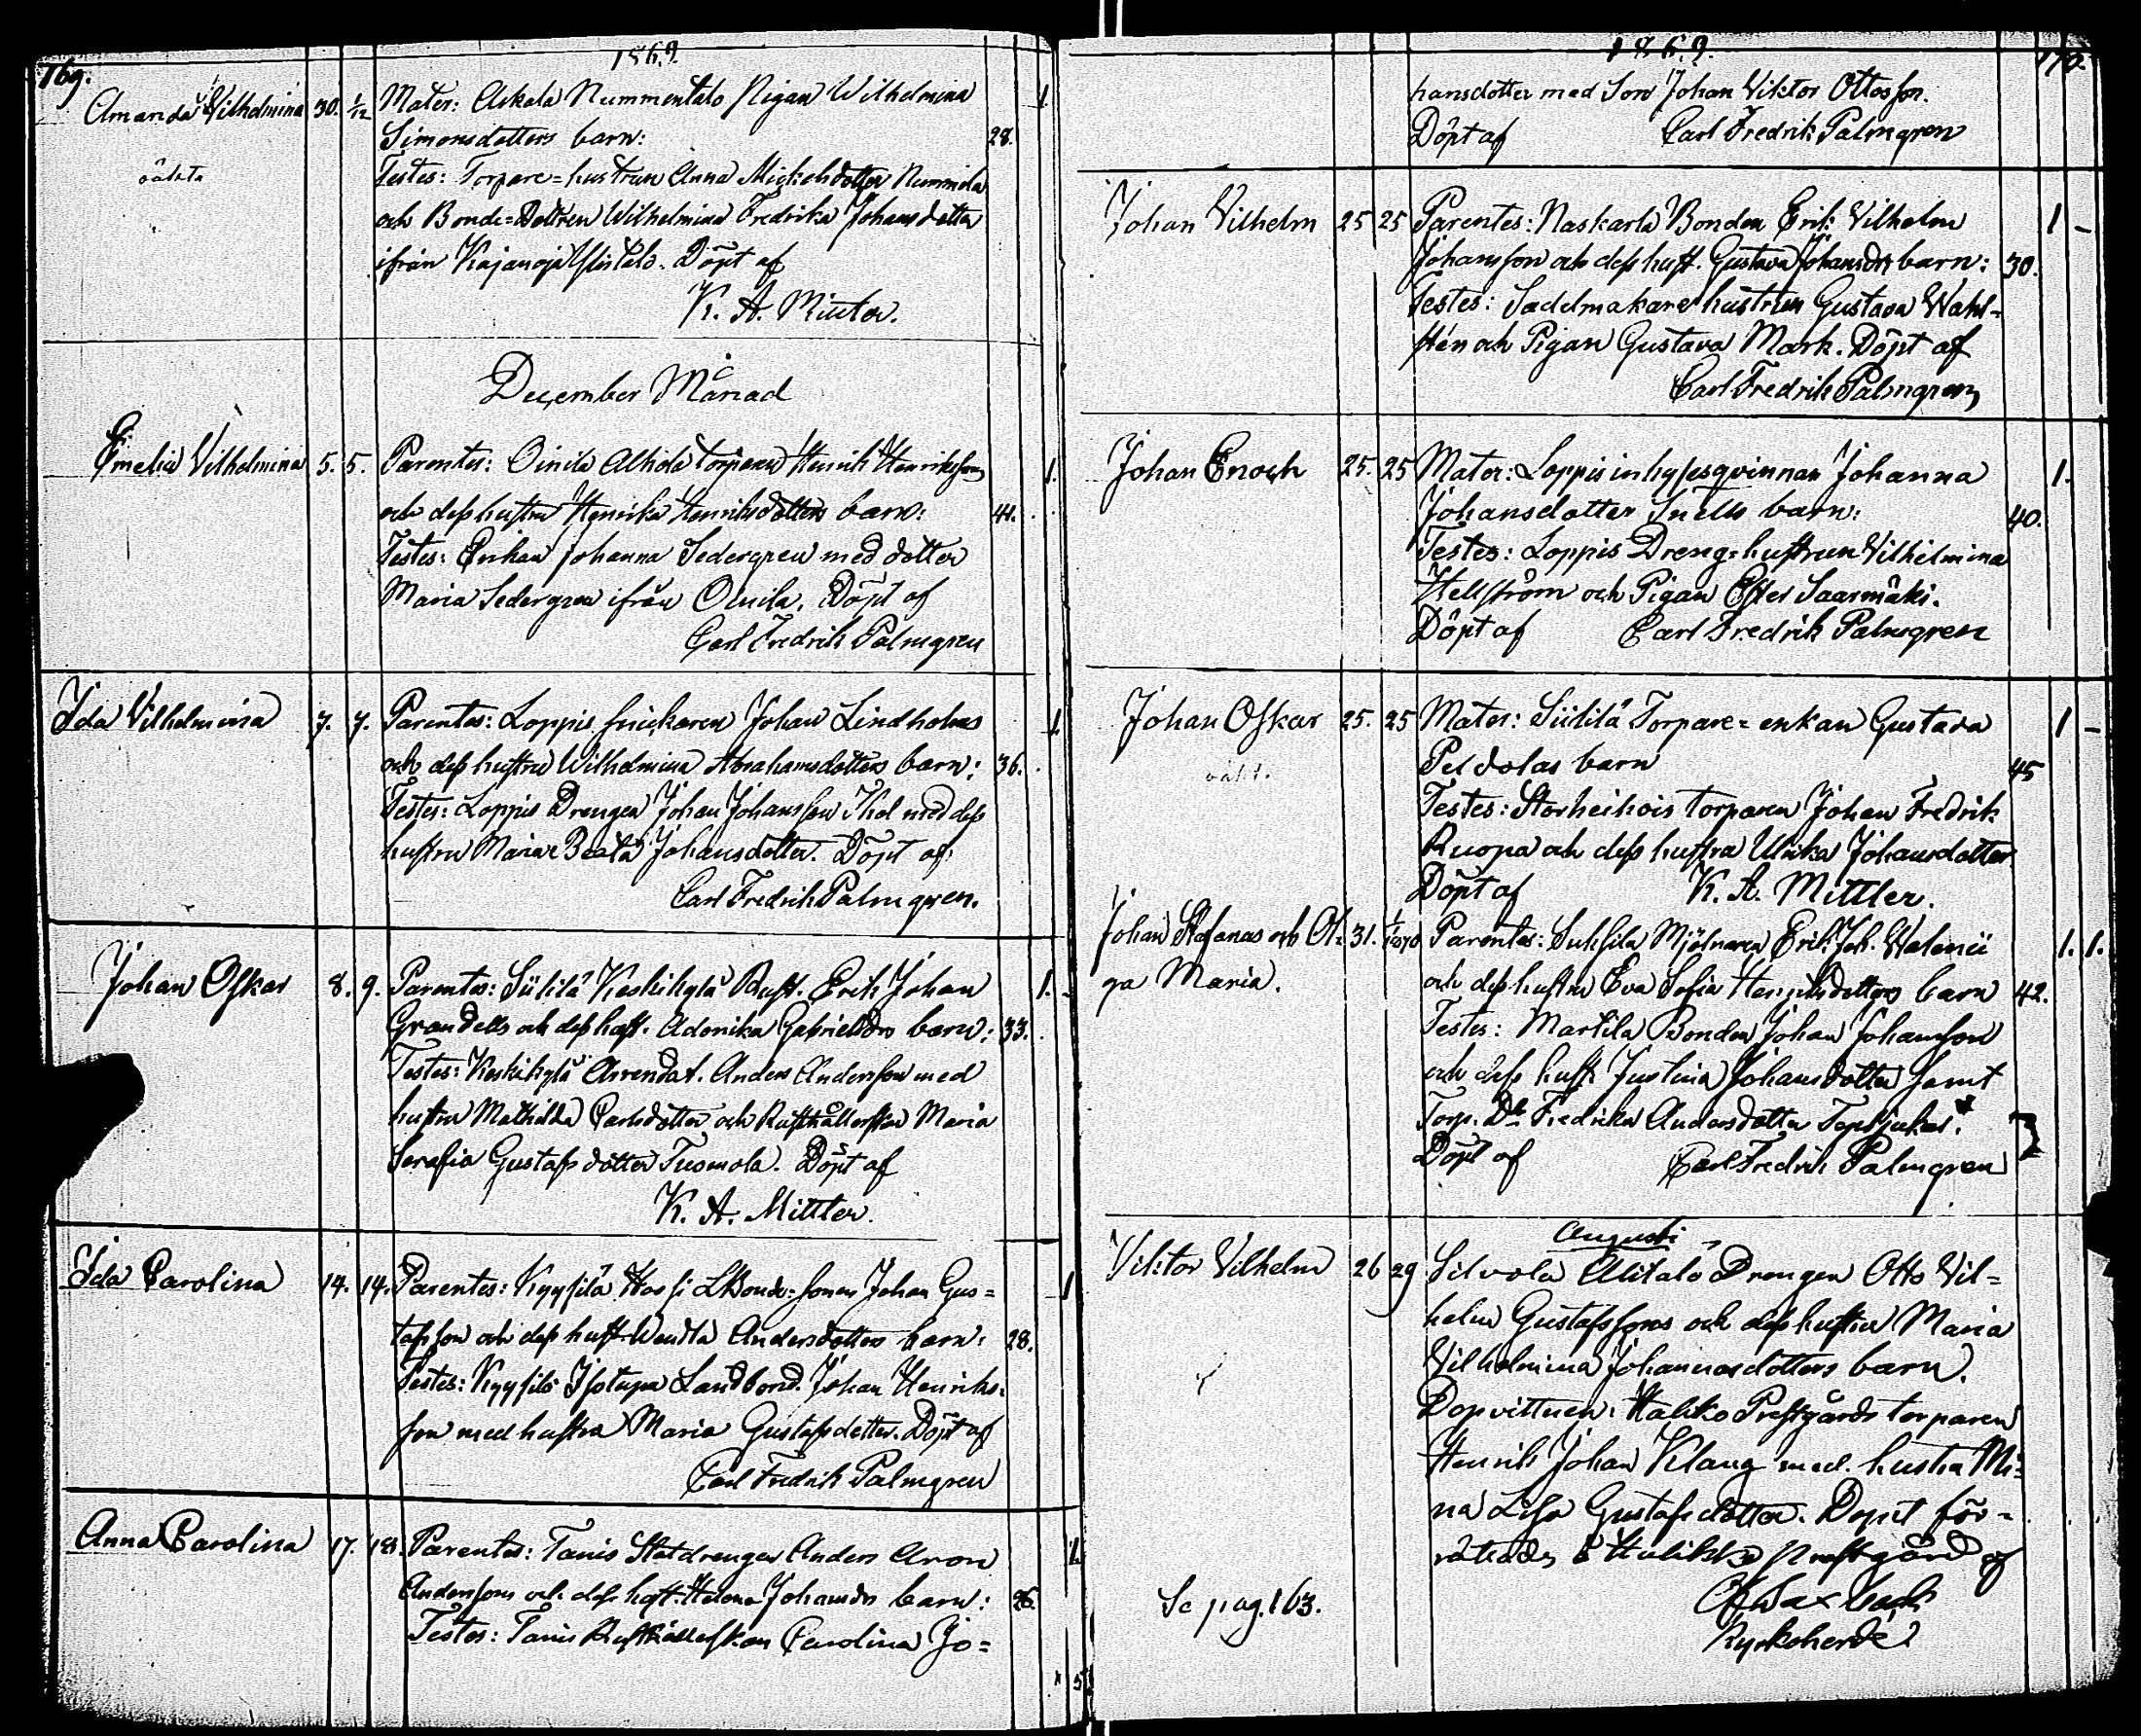 169.
1869
Amanda Vilhelmina 30. 1/12 Mater: Askala Nummentalo Pigan Wilhelmina 1
Simonsdotters barn: 28.
oäkta
Testes: Torpare=hustrun Anna Mickelsdotter Nummela
och Bonde=Dottren Wilhelmina Fredrika Johansdotter
ifrån Kajanoja. Döpt af
K. A. Mittler.
December Månad
Emelia Vilhelmina 5. 5. Parentes: Oinila Alhola torparen Henrik Henriksson 1.
och dess hustru Henrika Henriksdotters barn: 44.
Testes: Enkan Johanna Sedergren med dotter
Maria Sedergren ifrån Oinila. Döpt af
Carl Fredrik Palmgren
Ida Vilhelmina 7. 7. Parentes: Loppis Johan Lindholms 1
och dess hustru Wilhelmina Abrahamsdotters barn: 36.
Testes: Loppis Drengen Johan Johansson med dess
hustru Maria Beata Johansdotter. Döpt af
Carl Fredrik Palmgren.
Johan Oskar 8. 9. Parentes: Siililä Keskikylä Rust. Erik Johan 1.
Grandells och dess hust. Adonika Gabrielsdrs barn: 33.
Testes: Keskikylä Arrendat. Anders Andersson med
hustru Mathilda Carlsdotter och Rusthållerskan Maria
Serafia Gustafsdotter Tuomola. Döpt af
K. A. Mittler.
Ida Carolina 14. 14. Parentes: Kyysilä Bonde-sonen Johan Gus= 1
tafsson och dess hust. Wendla Andersdotters barn: 28.
Testes: Kyysilä Isotupa Landbond. Johan Henriks-
son med hustru Maria Gustafsdotter. Döpt af
Carl Fredrik Palmgren
Anna Carolina 17. 18. Parentes: Tanis Statdrengen Anders Aron 1.
Anderssons och dess hust. Helena Johansdrs barn: 26.
Testes: Tanis Rusthållerskan Carolina Jo=
1869.
170.
hansdotter med Son Johan Viktor Ottosson.
Döpt af Carl Fredrik Palmgren
Johan Vilhelm 25 25 Parentes: Naskarla Bonden Erik Vilhelm 1
Johansson och dess hust. Gustava Johansdrs barn: 30.
Testes: Sadelmakare hustrun Gustava Wahl=
stén och Pigan Gustava Mark. Döpt af
Carl Fredrik Palmgren
Johan Enoch 25. 25 Mater: Loppis inhysesqvinnan Johanna 1.
Johansdotter Snells barn: 40.
Testes: Loppis Dreng=hustrun Vilhelmina
Hellström och Pigan Ester Saarmäki.
Döpt af Carl Fredrik Palmgren
Johan Oskar 25. 25 Mater: Siililä Torpare=enkan Gustava 1
oäkt.
Peldolas barn 45
Testes: Storheikois torparen Johan Fredrik
Ruopa och dess hustru Ulrika Johansdotter
Döpt af K. A. Mittler.
Johan Stefanas och Ol= 31. 1/1870 Parentes: Suksila Mjölnaren Erik Joh. Walenii 1. 1.
ga Maria.
och dess hustru Eva Sofia Henriksdotters barn 42.
Testes: Martila Bonden Johan Johansson
och dess hust. Justina Johansdotter samt
Torp. Dr Fredrika Andersdotter
Döpt af Carl Fredrik Palmgren
Augusti
Viktor Vilhelm 26 29 Silvola Alitalo Drengen Otto Vil=
helm Gustafssons och dess hustru Maria
Vilhelmina Johannesdotters barn.
Dopvittnen: Haliko Prestgårds torparen
Henrik Johan Klang med hustru Mi=
na Lisa Gustafsdotter. Dopet för=
rättades å Halikko Prestgård af
Se pag. 163.
Kyrkoherde